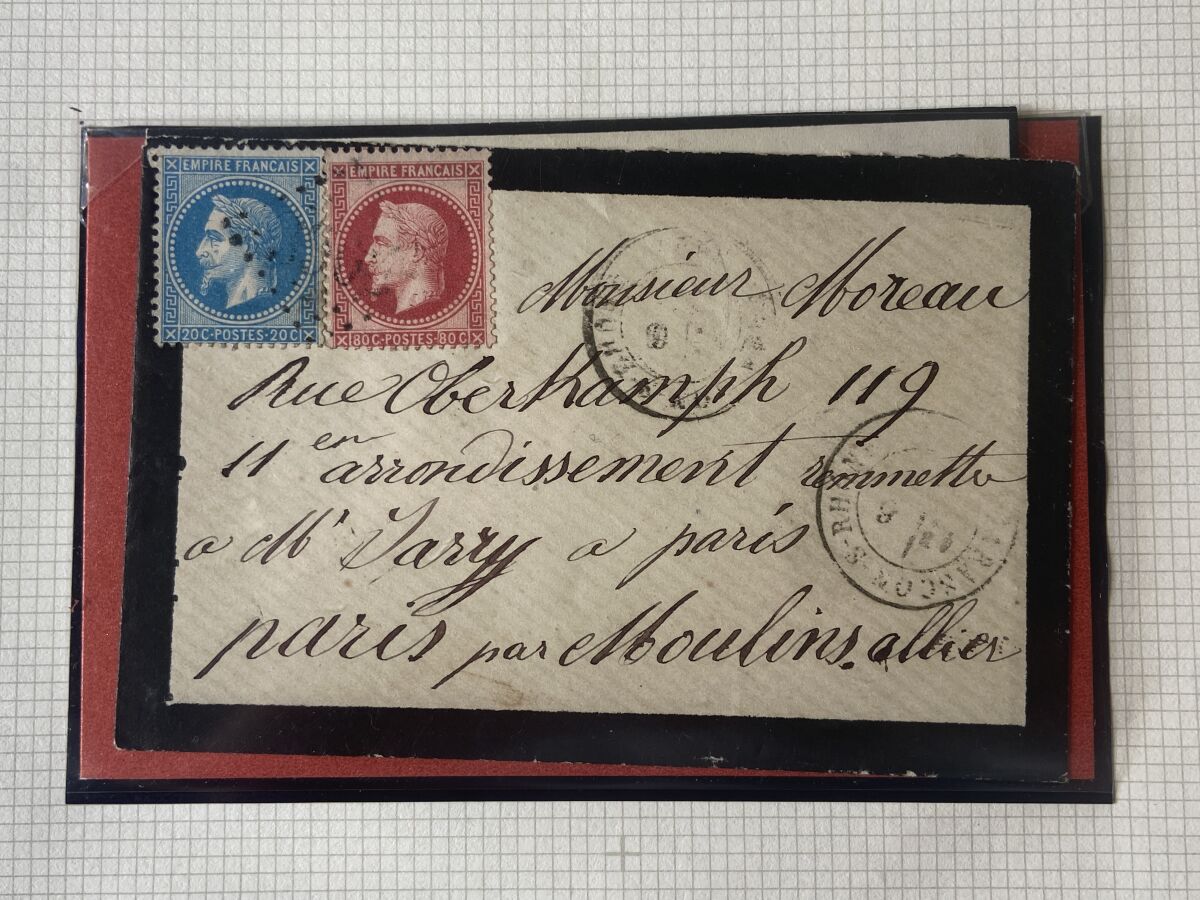 EMPIRE FRANCAIS
20C-POSTES-20C
EMPIRE FRANCAIS
80C-POSTES-80C
Monsieur Moreau
Rue Oberkamph 119
11 en arrondissement remmettre
a Mr Jarry a paris
paris par Moulins. allier
TARASCON-S-RHONE